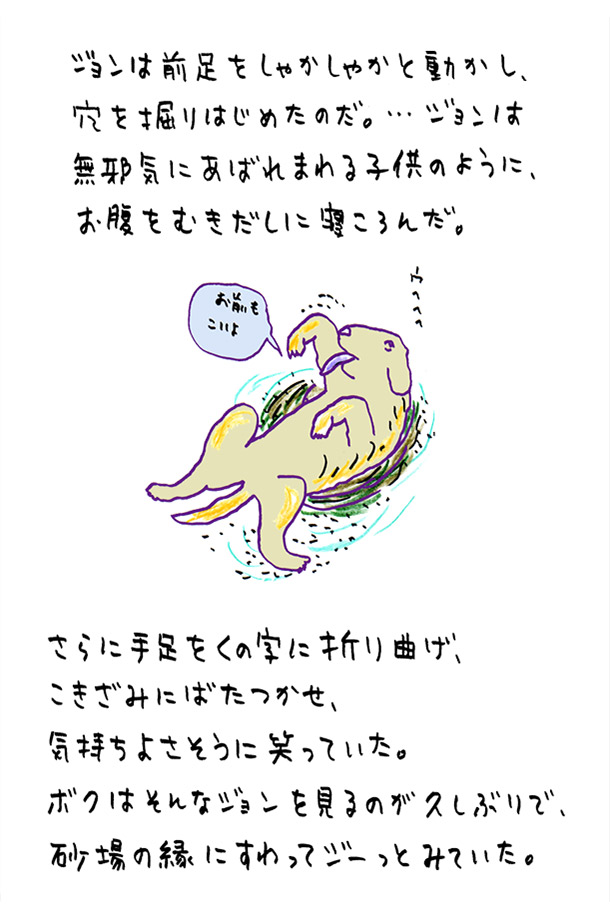 ジョンは前足をしゃかしゃかと動かし、
穴を掘りはじめたのだ。…ジョンは
無邪気にあばれまわる子供のように、
お腹をむきだしに寝ころんだ。
お前も
こいよ
ウヘヘヘ
さらに手足をくの字に折り曲げ、
こきざみにばたつかせ、
気持ちよさそうに笑っていた。
ボクはそんなジョンを見るのが久しぶりで、
砂場の縁にすわってジーっとみていた。